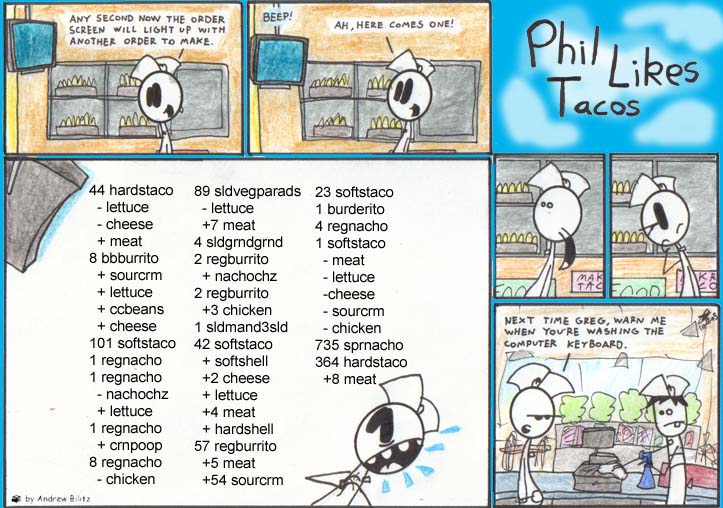 ANY SECOND NOW THE ORDER
SCREEN WILL LIGHT UP WITH
ANOTHER ORDER TO MAKE.
BEEP!
AH, HERE COMES ONE!
Phil
Likes
Tacos
44 hardstaco
- lettuce
- cheese
+ meat
8 bbburrito
+ sourcrm
+ lettuce
+ ccbeans
+ cheese
101 softstaco
1 regnacho
1 regnacho
- nachochz
+ lettuce
1 regnacho
+ crnpoop
8 regnacho
- chicken
89 sldvegparads
- lettuce
+7 meat
4 sldgrndgrnd
2 regburrito
+ nachochz
2 regburrito
+3 chicken
1 sldmand3sld
42 softstaco
+ softshell
+2 cheese
+ lettuce
+4 meat
+ hardshell
57 regburrito
+5 meat
+54 sourcrm
23 softstaco
1 burderito
4 regnacho
1 softstaco
- meat
- lettuce
-cheese
- sourcrm
- chicken
735 sprnacho
364 hardstaco
+8 meat
by Andrew Bilitz
MAK
TAC
NEXT TIME GREG, WARN ME
WHEN YOU'RE WASHING THE
COMPUTER KEYBOARD.